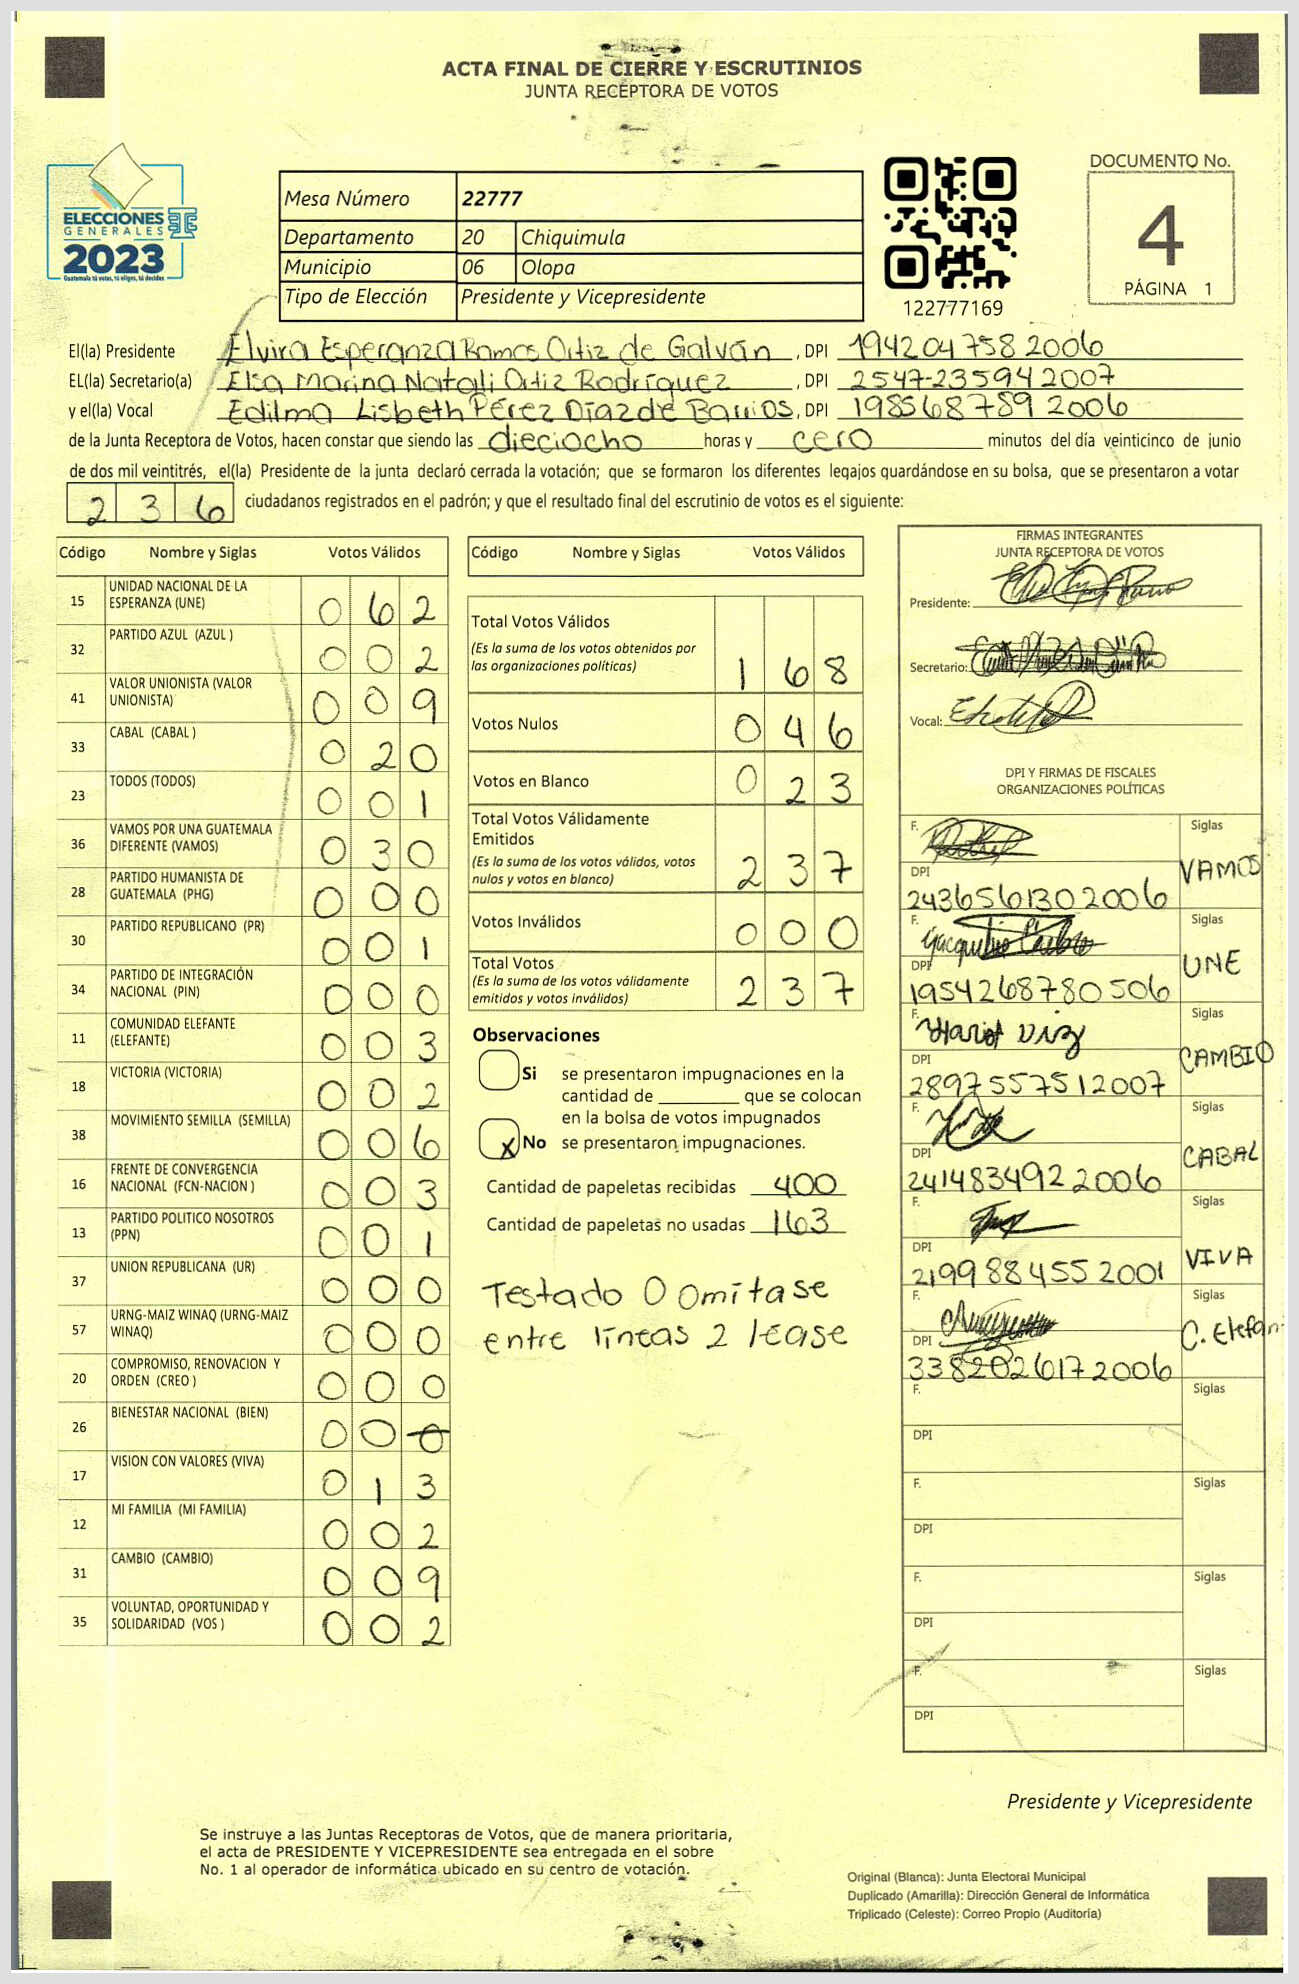 ACTA FINAL DE CIERRE Y ESCRUTINIOS
JUNTA RECEPTORA DE VOTOS
ELECCIONES
GENERALES
2023
Guatemala tú votas, tú eliges, tú decides
Mesa Número 22777
Departamento 20 Chiquimula
Municipio 06 Olopa
Tipo de Elección Presidente y Vicepresidente
122777169
DOCUMENTO No.
4
PÁGINA 1
El(la) Presidente Elvira Esperanza Ramos Ortiz de Galván, DPI 1942047582006
EL(la) Secretario(a) Elsa Marina Natali Ortiz Rodríguez, DPI 2547-235942007
y el(la) Vocal Edilma Lisbeth Pérez Díaz de Barrios, DPI 1985687892006
de la Junta Receptora de Votos, hacen constar que siendo las dieciocho horas y cero minutos del día veinticinco de junio
de dos mil veintitrés, el(la) Presidente de la junta declaró cerrada la votación; que se formaron los diferentes legajos quardándose en su bolsa, que se presentaron a votar
2 3 6 ciudadanos registrados en el padrón; y que el resultado final del escrutinio de votos es el siguiente:
Código Nombre y Siglas Votos Válidos
15 UNIDAD NACIONAL DE LA ESPERANZA (UNE) 0 6 2
32 PARTIDO AZUL (AZUL ) 0 0 2
41 VALOR UNIONISTA (VALOR UNIONISTA) 0 0 9
33 CABAL (CABAL ) 0 2 0
23 TODOS (TODOS) 0 0 1
36 VAMOS POR UNA GUATEMALA DIFERENTE (VAMOS) 0 3 0
28 PARTIDO HUMANISTA DE GUATEMALA (PHG) 0 0 0
30 PARTIDO REPUBLICANO (PR) 0 0 1
34 PARTIDO DE INTEGRACIÓN NACIONAL (PIN) 0 0 0
11 COMUNIDAD ELEFANTE (ELEFANTE) 0 0 3
18 VICTORIA (VICTORIA) 0 0 2
38 MOVIMIENTO SEMILLA (SEMILLA) 0 0 6
16 FRENTE DE CONVERGENCIA NACIONAL (FCN-NACION ) 0 0 3
13 PARTIDO POLITICO NOSOTROS (PPN) 0 0 1
37 UNION REPUBLICANA (UR) 0 0 0
57 URNG-MAIZ WINAQ (URNG-MAIZ WINAQ) 0 0 0
20 COMPROMISO, RENOVACION Y ORDEN (CREO ) 0 0 0
26 BIENESTAR NACIONAL (BIEN) 0 0 0
17 VISION CON VALORES (VIVA) 0 1 3
12 MI FAMILIA (MI FAMILIA) 0 0 2
31 CAMBIO (CAMBIO) 0 0 9
35 VOLUNTAD, OPORTUNIDAD Y SOLIDARIDAD (VOS ) 0 0 2
Código Nombre y Siglas Votos Válidos
Total Votos Válidos
(Es la suma de los votos obtenidos por
las organizaciones politicas) 1 6 8
Votos Nulos 0 4 6
Votos en Blanco 0 2 3
Total Votos Válidamente
Emitidos
(Es la suma de los votos válidos, votos
nulos y votos en blanco) 2 3 7
Votos Inválidos 0 0 0
Total Votos
(Es la suma de los votos válidamente
emitidos y votos inválidos) 2 3 7
Observaciones
Si se presentaron impugnaciones en la
cantidad de ________ que se colocan
en la bolsa de votos impugnados
x No se presentaron impugnaciones.
Cantidad de papeletas recibidas 400
Cantidad de papeletas no usadas 163
Testado 0 omítase
entre líneas 2 léase
FIRMAS INTEGRANTES
JUNTA RECEPTORA DE VOTOS
Presidente:
Secretario:
Vocal:
DPI Y FIRMAS DE FISCALES
ORGANIZACIONES POLÍTICAS
F. Siglas
DPI VAMOS
2436561302006
F. Siglas
DPI UNE
1954268780506
F. Siglas
DPI CAMBIO
2897557512007
F. Siglas
DPI CABAL
2414834922006
F. Siglas
DPI VIVA
2199884552001
F. Siglas
DPI C. Elefan
3382026172006
F. Siglas
DPI
F. Siglas
DPI
F. Siglas
DPI
F. Siglas
DPI
Presidente y Vicepresidente
Se instruye a las Juntas Receptoras de Votos, que de manera prioritaria,
el acta de PRESIDENTE Y VICEPRESIDENTE sea entregada en el sobre
No. 1 al operador de informática ubicado en su centro de votación.
Original (Blanca): Junta Electoral Municipal
Duplicado (Amarilla): Dirección General de Informática
Triplicado (Celeste): Correo Propio (Auditoría)